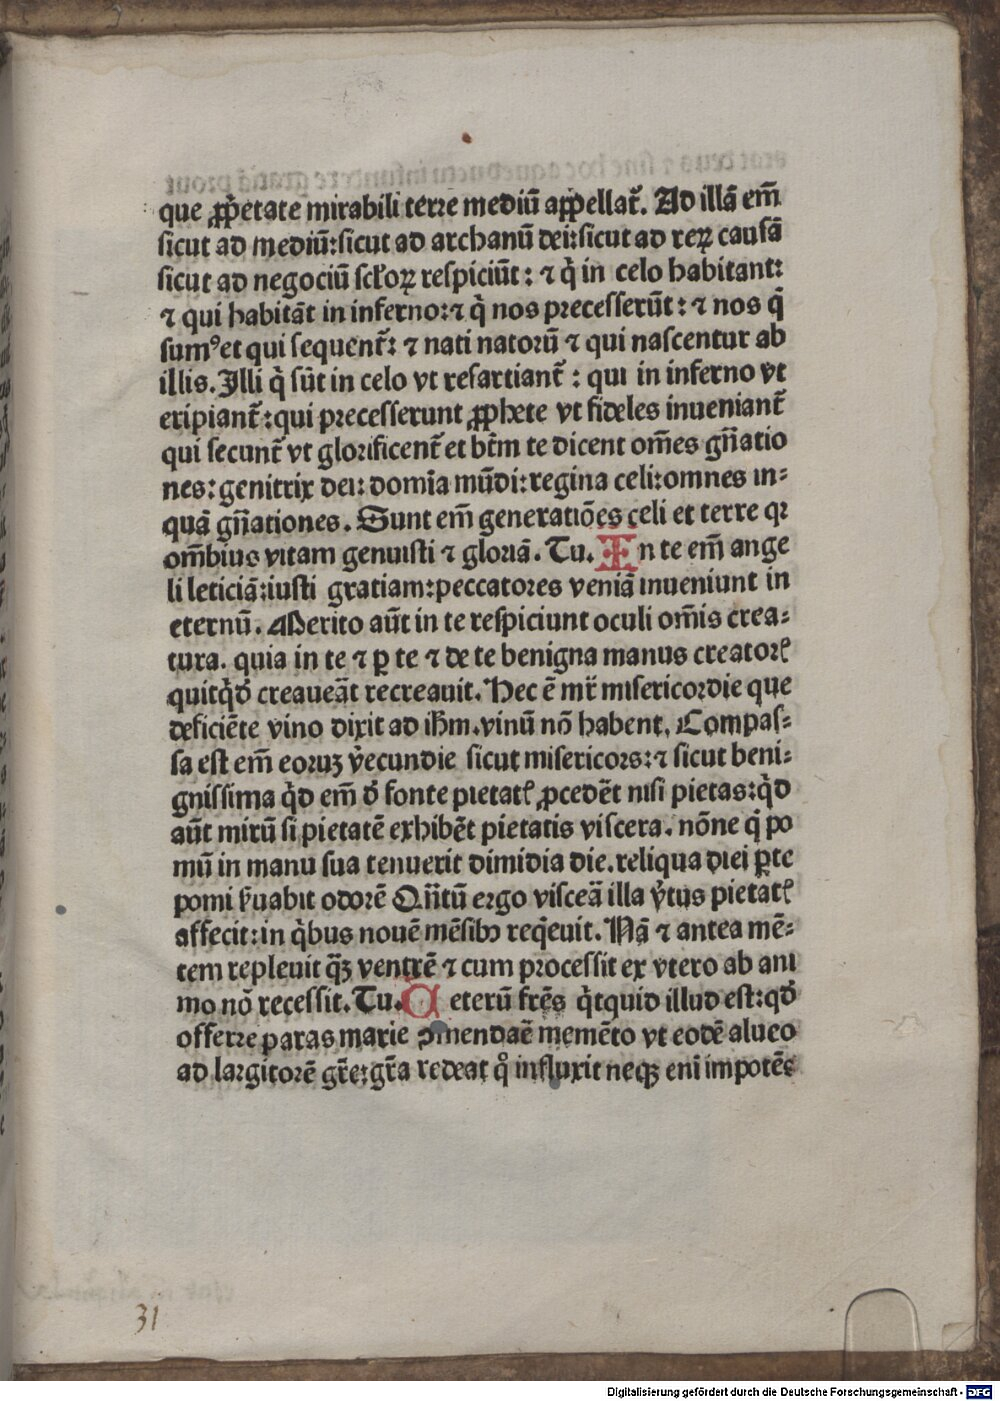 que ꝓp̃etate mirabili terre mediũ aꝓpellat᷑. Ad illã em̃
sicut ad mediũ: sicut ad archanũ dei: sicut ad reꝝ causã
sicut ad negociũ scƚoꝝ respiciũt: ⁊ q̇ in celo habitant:
⁊ qui habitãt in inferno: ⁊ q̇ nos precesserũt: ⁊ nos q̇
sumꝰ et qui sequent᷑: ⁊ nati natorũ ⁊ qui nascentur ab
illis. Illi q̇ sũt in celo vt resartiant᷑: qui in inferno vt
eripiant᷑: qui precesserunt ꝓphete vt fideles inueniant᷑
qui secunt᷑ vt glorificent᷑ et bt̃m te dicent om̃es gñatio
nes: genitrix dei: domĩa mũdi: regina celi: omnes in⸗
quã gñationes. Sunt em̃ generatiões celi et terre qꝛ
om̃bius vitam genuisti ⁊ gloriã. Tu. In te em̃ ange
li leticiã: iusti gratiam: peccatores veniã inueniunt in
eternũ. Merito aũt in te respiciunt oculi om̃is crea⸗
tura. quia in te ⁊ ꝑ te ⁊ de te benigna manus creatorꝭ
quitq̇d creaueãt recreauit. Hec ẽ mr̃ misericordie que
deficiẽte vino dixit ad ihm̃. vinũ nõ habent. Compas⸗
sa est em̃ eoruꝫ v̓ecundie sicut misericors: ⁊ sicut beni⸗
gnissima q̇d em̃ đ fonte pietatꝭ ꝓcedẽt nisi pietas: q̇d
aũt mirũ si pietatẽ exhibẽt pietatis viscera. nõne q̇ po
mũ in manu sua tenuerit dimidia die. reliqua diei ꝑte
pomi ẜuabit odorẽ Qñtũ ergo visceã illa v̓tus pietatꝭ
affecit: in q̇bus nouẽ mẽsibꝫ req̇euit. Nã ⁊ antea mẽ⸗
tem repleuit q̃ꝫ ventrẽ ⁊ cum processit ex vtero ab ani
mo nõ recessit. Tu. Ceterũ fr̃es q̇tquid illud est: qđ
offerre paras marie ꝯmendaẽ memẽto vt eodẽ alueo
ad largitorẽ gr̃e: gr̃a redeat qͦ influxit neqꝫ eni impotẽs
31
Digitalisierung gefördert durch die Deutsche Forschungsgemeinschaft - DFG